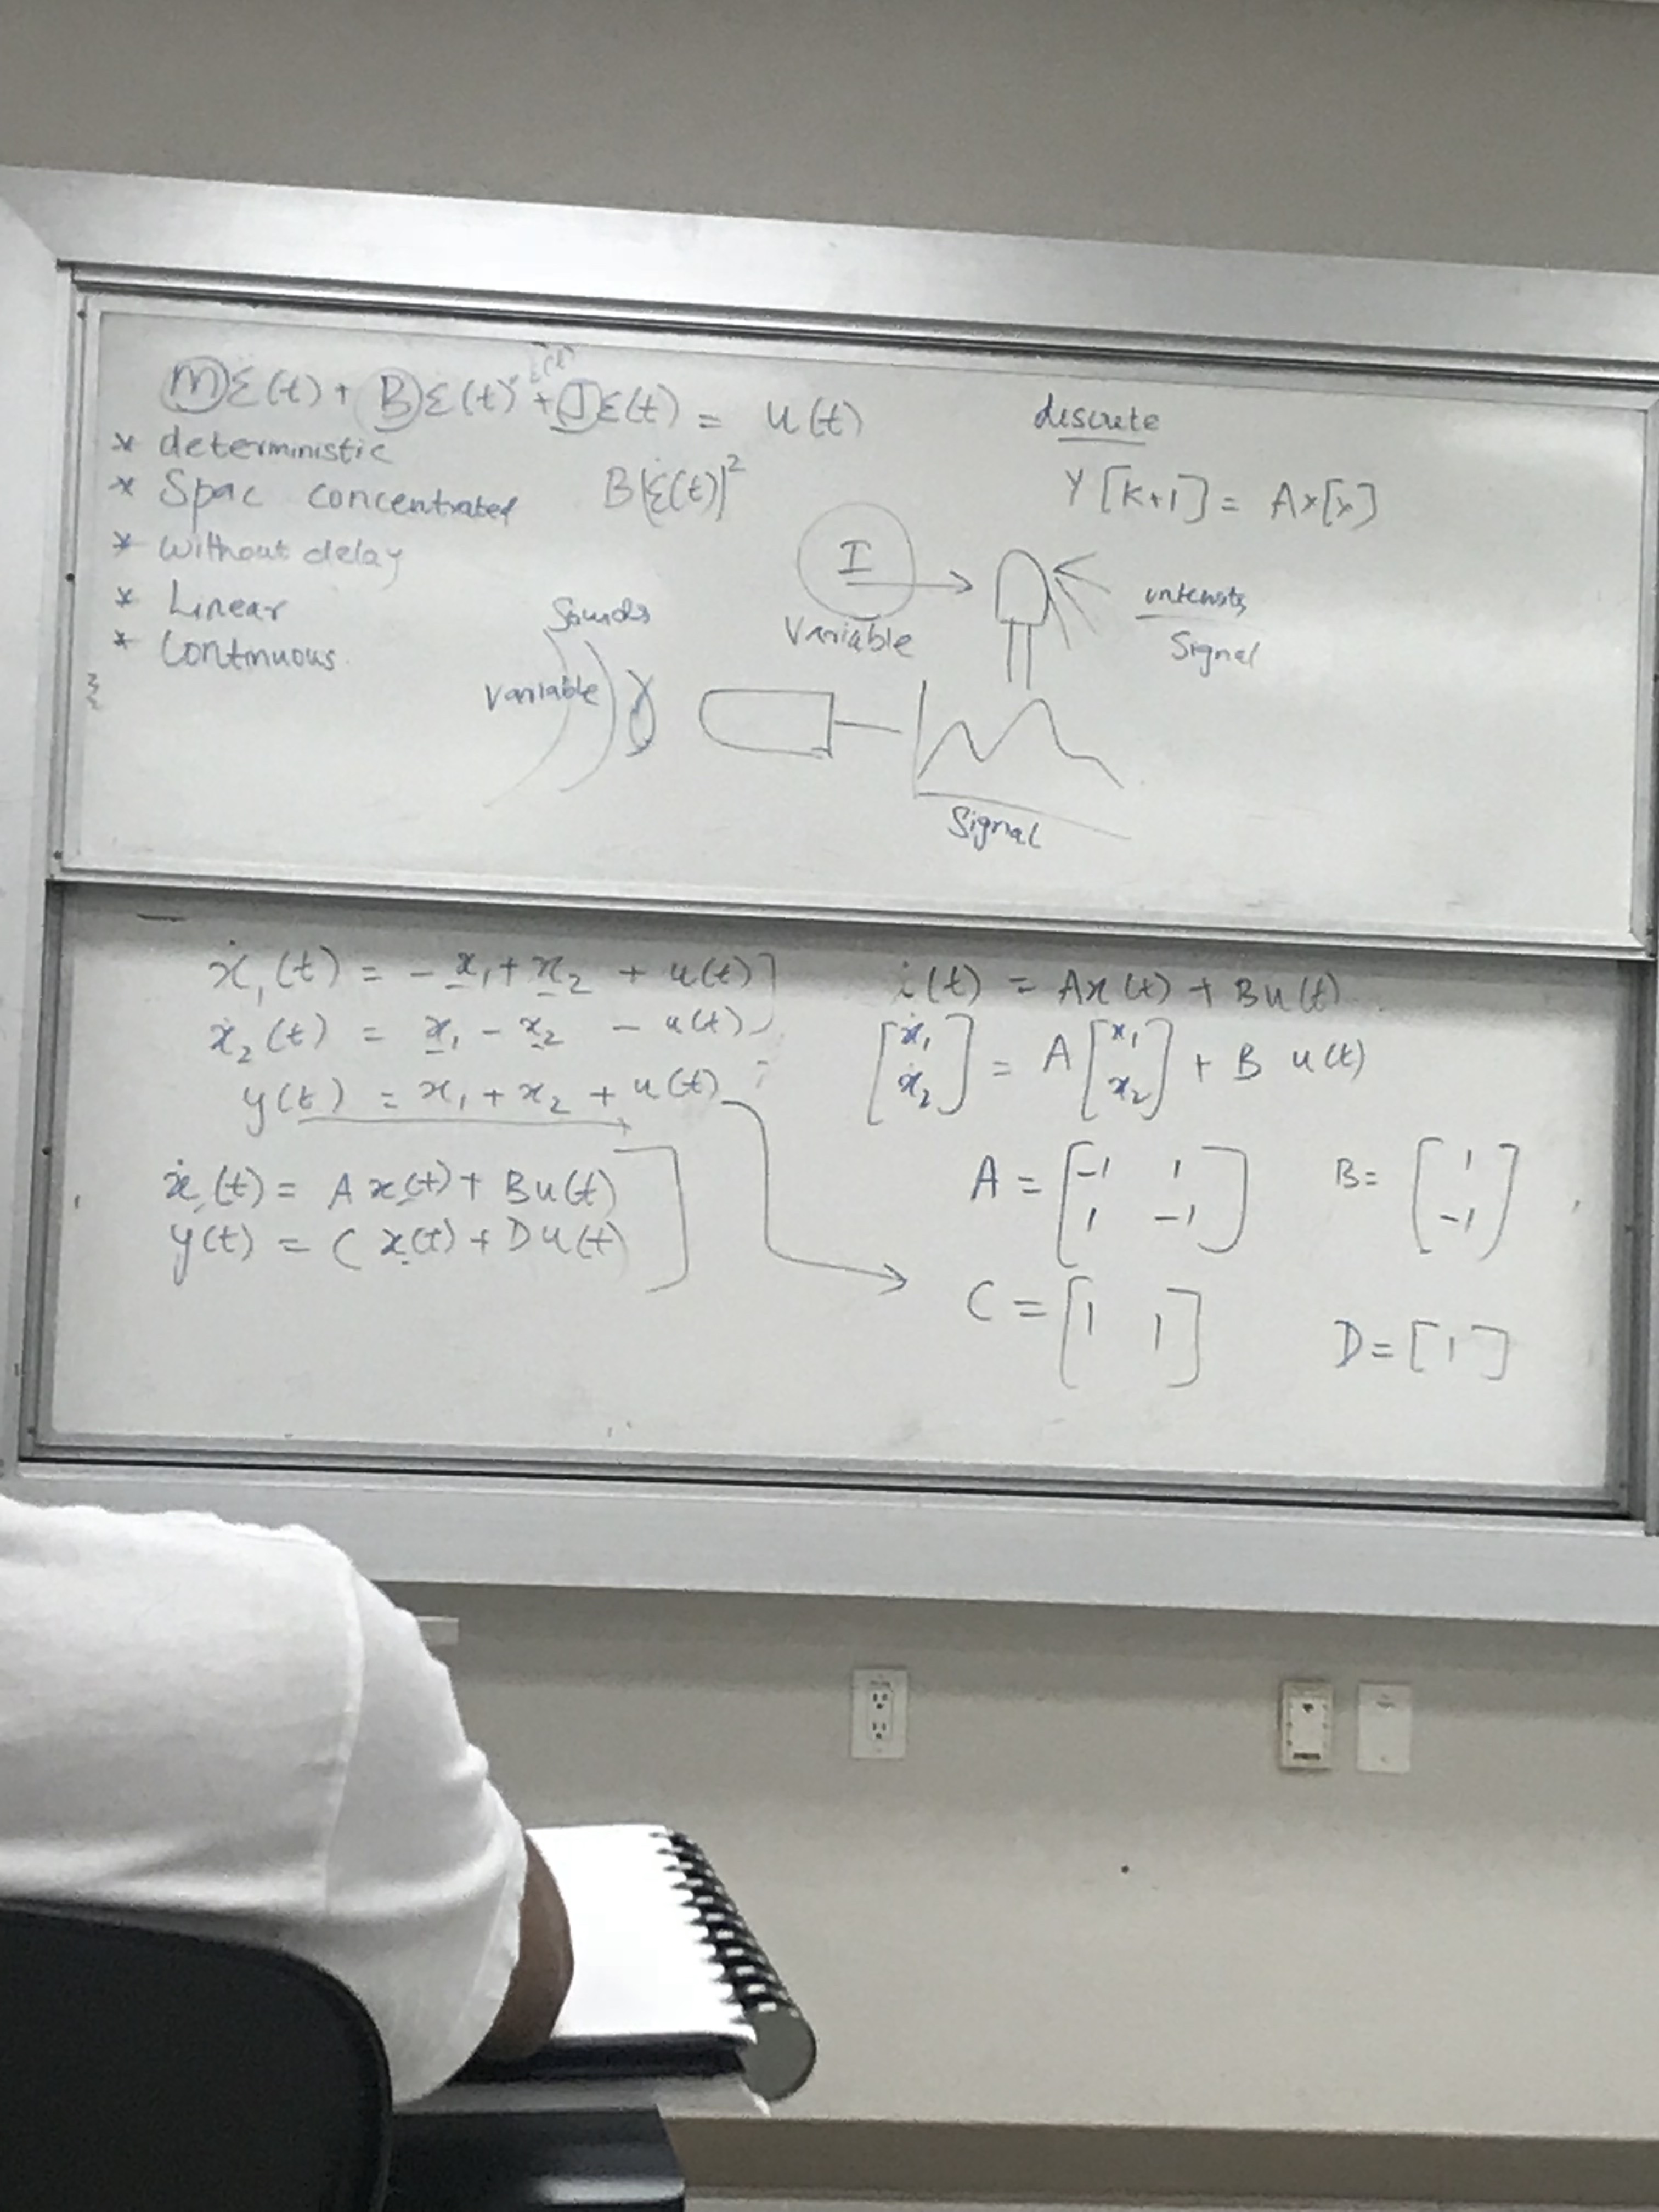 Mε̇(t) + Bε̇(t) + Jε(t) = u(t)
* deterministic
* Spac concentrated
* without delay
* Linear
* Continuous
B|ε̇(t)|²
discrete
Y[k+1] = Ax[x]
I
Variable
intensity
Signal
Sounds
Variable
Signal
ẋ₁(t) = -x₁ + x₂ + u(t)
ẋ₂(t) = x₁ - x₂ - u(t)
y(t) = x₁ + x₂ + u(t)
ẋ(t) = Ax(t) + Bu(t)
y(t) = Cx(t) + Du(t)
ẋ(t) = Ax(t) + Bu(t)
[ẋ₁ ẋ₂] = A [x₁ x₂] + B u(t)
A = [-1 1
1 -1]
B = [1
-1]
C = [1 1]
D = [1]